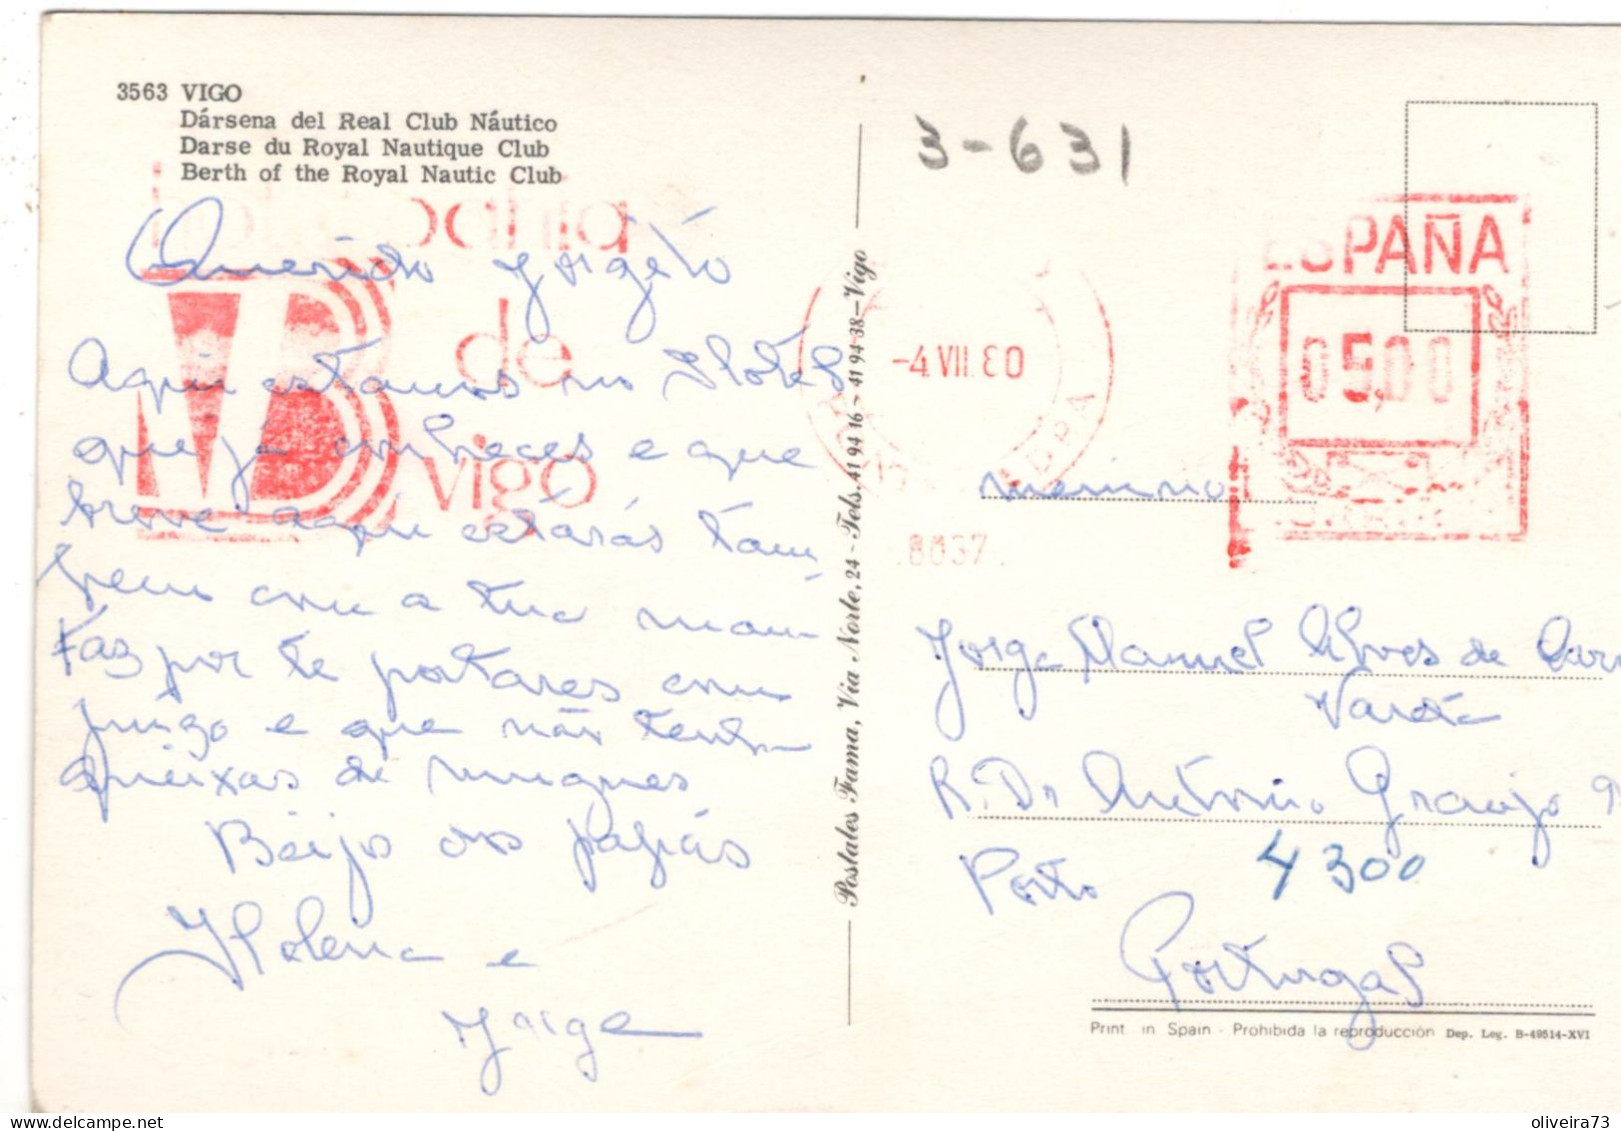 3563 VIGO
Dársena del Real Club Náutico
Darse du Royal Nautique Club
Berth of the Royal Nautic Club
3-631
de
vigo
ESPAÑA
0500
-4 VII. 80
8037
Querido Jorgéto
Aqui estamos no Hotel
que já conheces e que
breve aqui estarás tam
bem com a tua mam
Faz por te portares com
juizo e que não tenh
queixas de ninguem
Beijo dos papás
Helena e
Jorge
Postales Fama, Via Norte, 24 - Tels. 41 94 16 - 41 94 38 - Vigo
menino
Jorge Manuel Alves de
R. Dr António
Porto 4300
Portugal
Print in Spain - Prohibida la reproducción Dep. Leg. B-49514-XVI
oliveira73